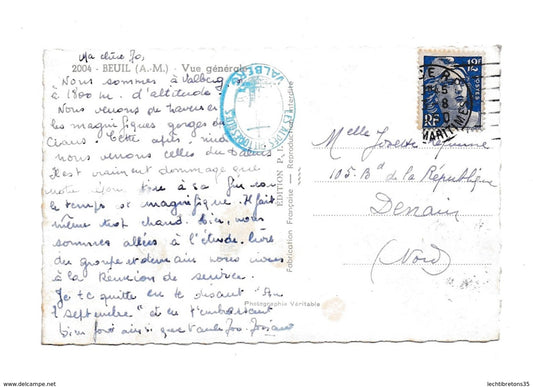 Ma chère Jo,
2004 - BEUIL (A.-M.) - Vue générale
Nous sommes à Valberg
à 1800 m. d'altitude.
Nous venons de traverser
les magnifiques gorges du
Cians. Cette après midi
nous verrons celles du Daluis
Il est vraiment dommage que
notre séjour tire à sa fin car
le temps est magnifique. Il fait
même trop chaud. Hier, nous
sommes allées à l'étude, hors
du groupe et demain nous irons
à la Réunion de service.
Je te quitte en te disant "Au
1 septembre" et en t'embrassant
bien fort ainsi que
Photographie Véritable
VALBERG
EDITION P. L.
Fabrication Française — Reproduction Interdite
12F
POSTES
RF
MARITIMES
Melle Josette
105. Bd de la République
Denain
(Nord)
www.delcampe.net
lechtibretons35